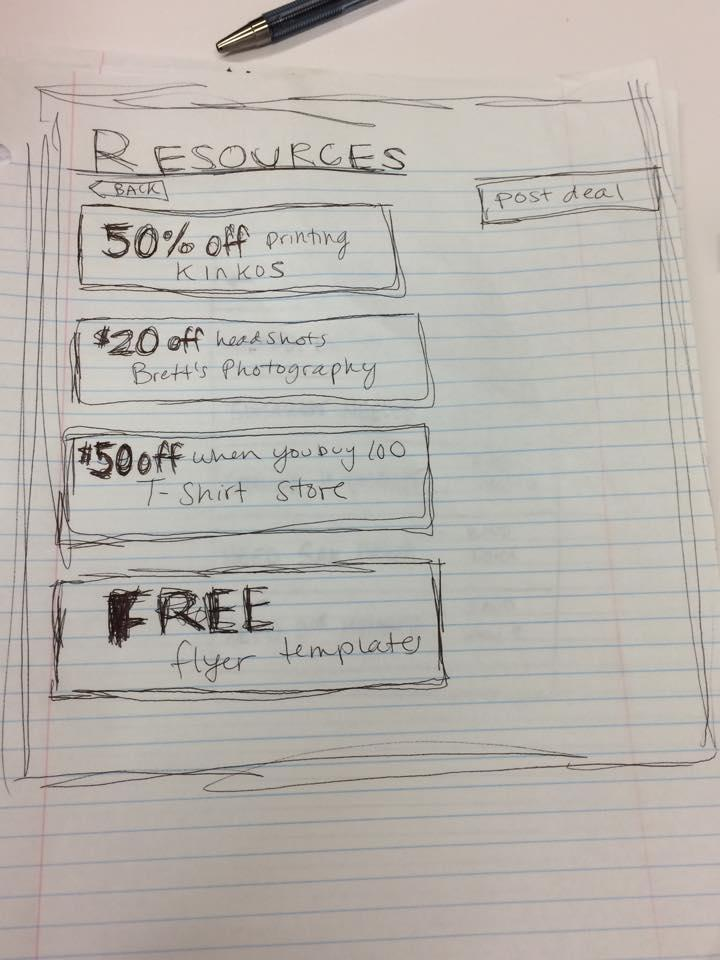 RESOURCES
BACK
post deal
50% off printing
KINKOS
$20 off headshots
Brett's Photography
$50 off when you buy 100
T-Shirt Store
FREE
flyer templates